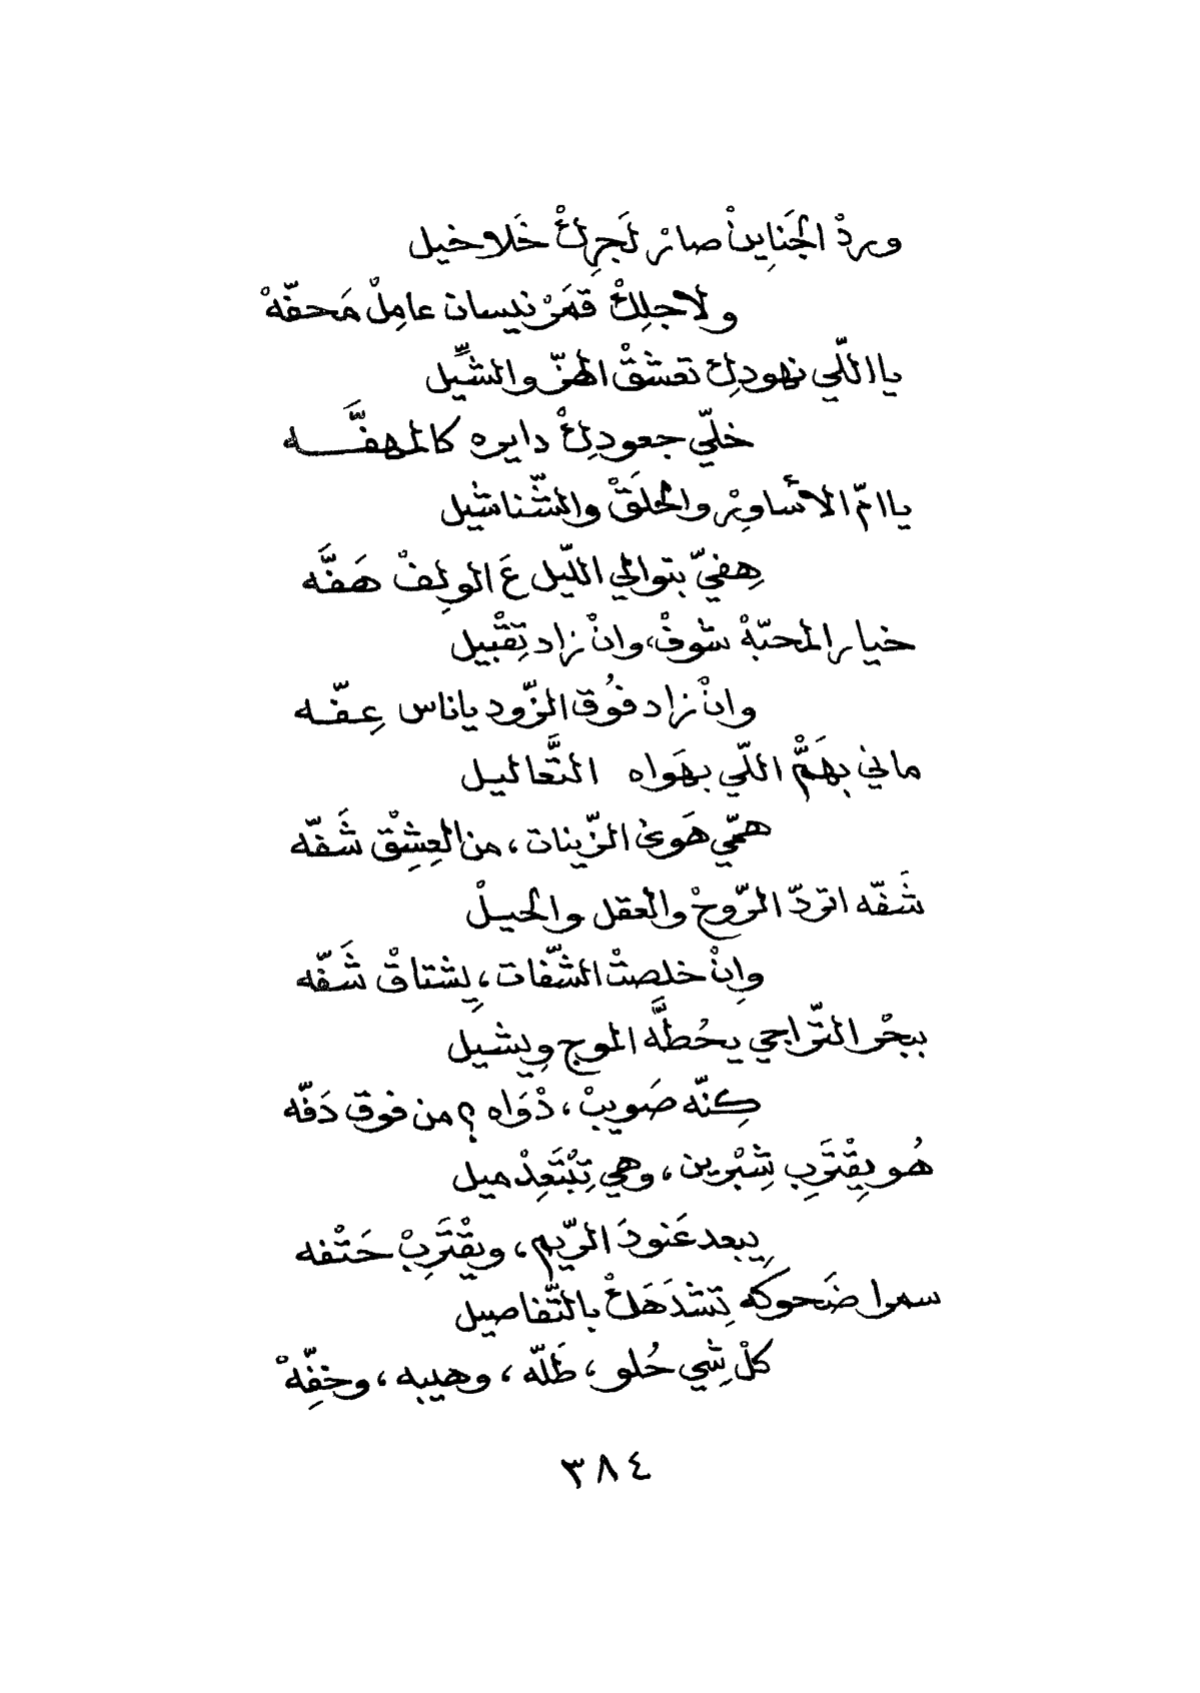 وردْ الجَنايِنْ صارْ لَجرِكْ خَلاخيل
ولاجلِكْ قَمَرْ نيسان عامِلْ مَحفّهْ
يااللّي نهودِك تعشقْ الهزّ والشّيل
خلّي جعودِكْ دايره كالمهفَّه
ياامّ الأساوِرْ والحلَقْ والشّناشيل
هِفيّ بتوالي اللّيل عَ الولِفْ هَفَّه
خيار المحبّهْ شوفْ، وانْ زاد تِقْبيل
وانْ زاد فوُق الزّود ياناس عِفّه
ماني بهَمّْ اللّي بهَواه التَّعاليل
همّي هَوىٰ الزّينات، من العِشِقْ شَفّه
شَفّه اتردّ الرّوحْ والعقل والحيلْ
وِانْ خلصتْ الشّفات، يِشتاقْ شَفّه
ببحْر التّراجي يحُطَّه الموج ويِشيل
كِنّه صَويبْ، دْوَاه؟ من فوق دَفّه
هُو يِقْتَرِب شِبْرين، وهي تِبْتَعِدْ ميل
يِبعد عَنودَ الرّيم، ويِقْتَرِبْ حَتْفه
سمرا ضَحوكه تِشدَهَكْ بالتّفاصيل
كلْ شِي حُلو، طَلّه، وهيبه، وخفِّهْ
٣٨٤